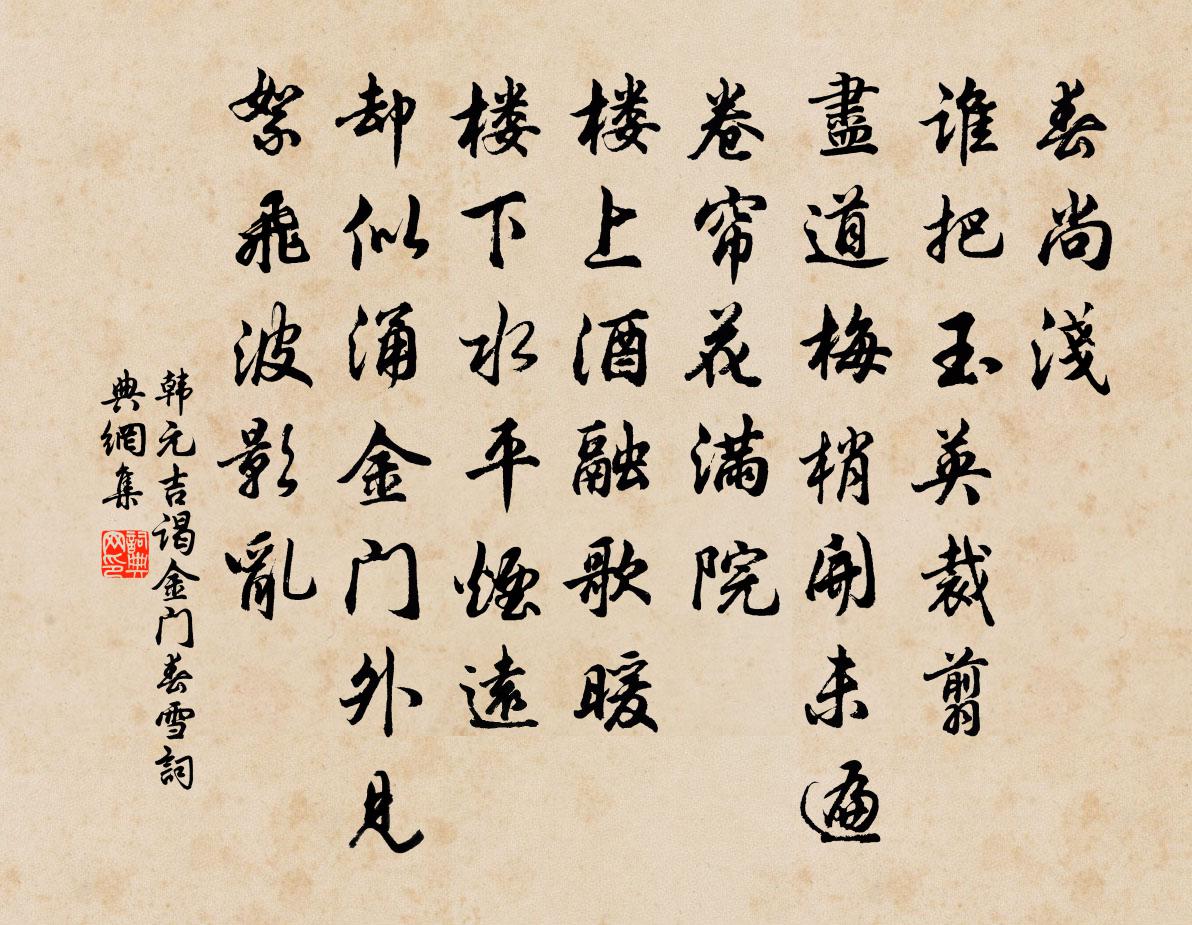 春尚淺
谁把玉英裁剪
盡道梅梢開未遍
卷帘花满院
楼上酒融歌暖
楼下水平煙遠
却似涌金门外見
絮飛波影亂
韩元吉谒金门春雪詞
典網集
詞典网印